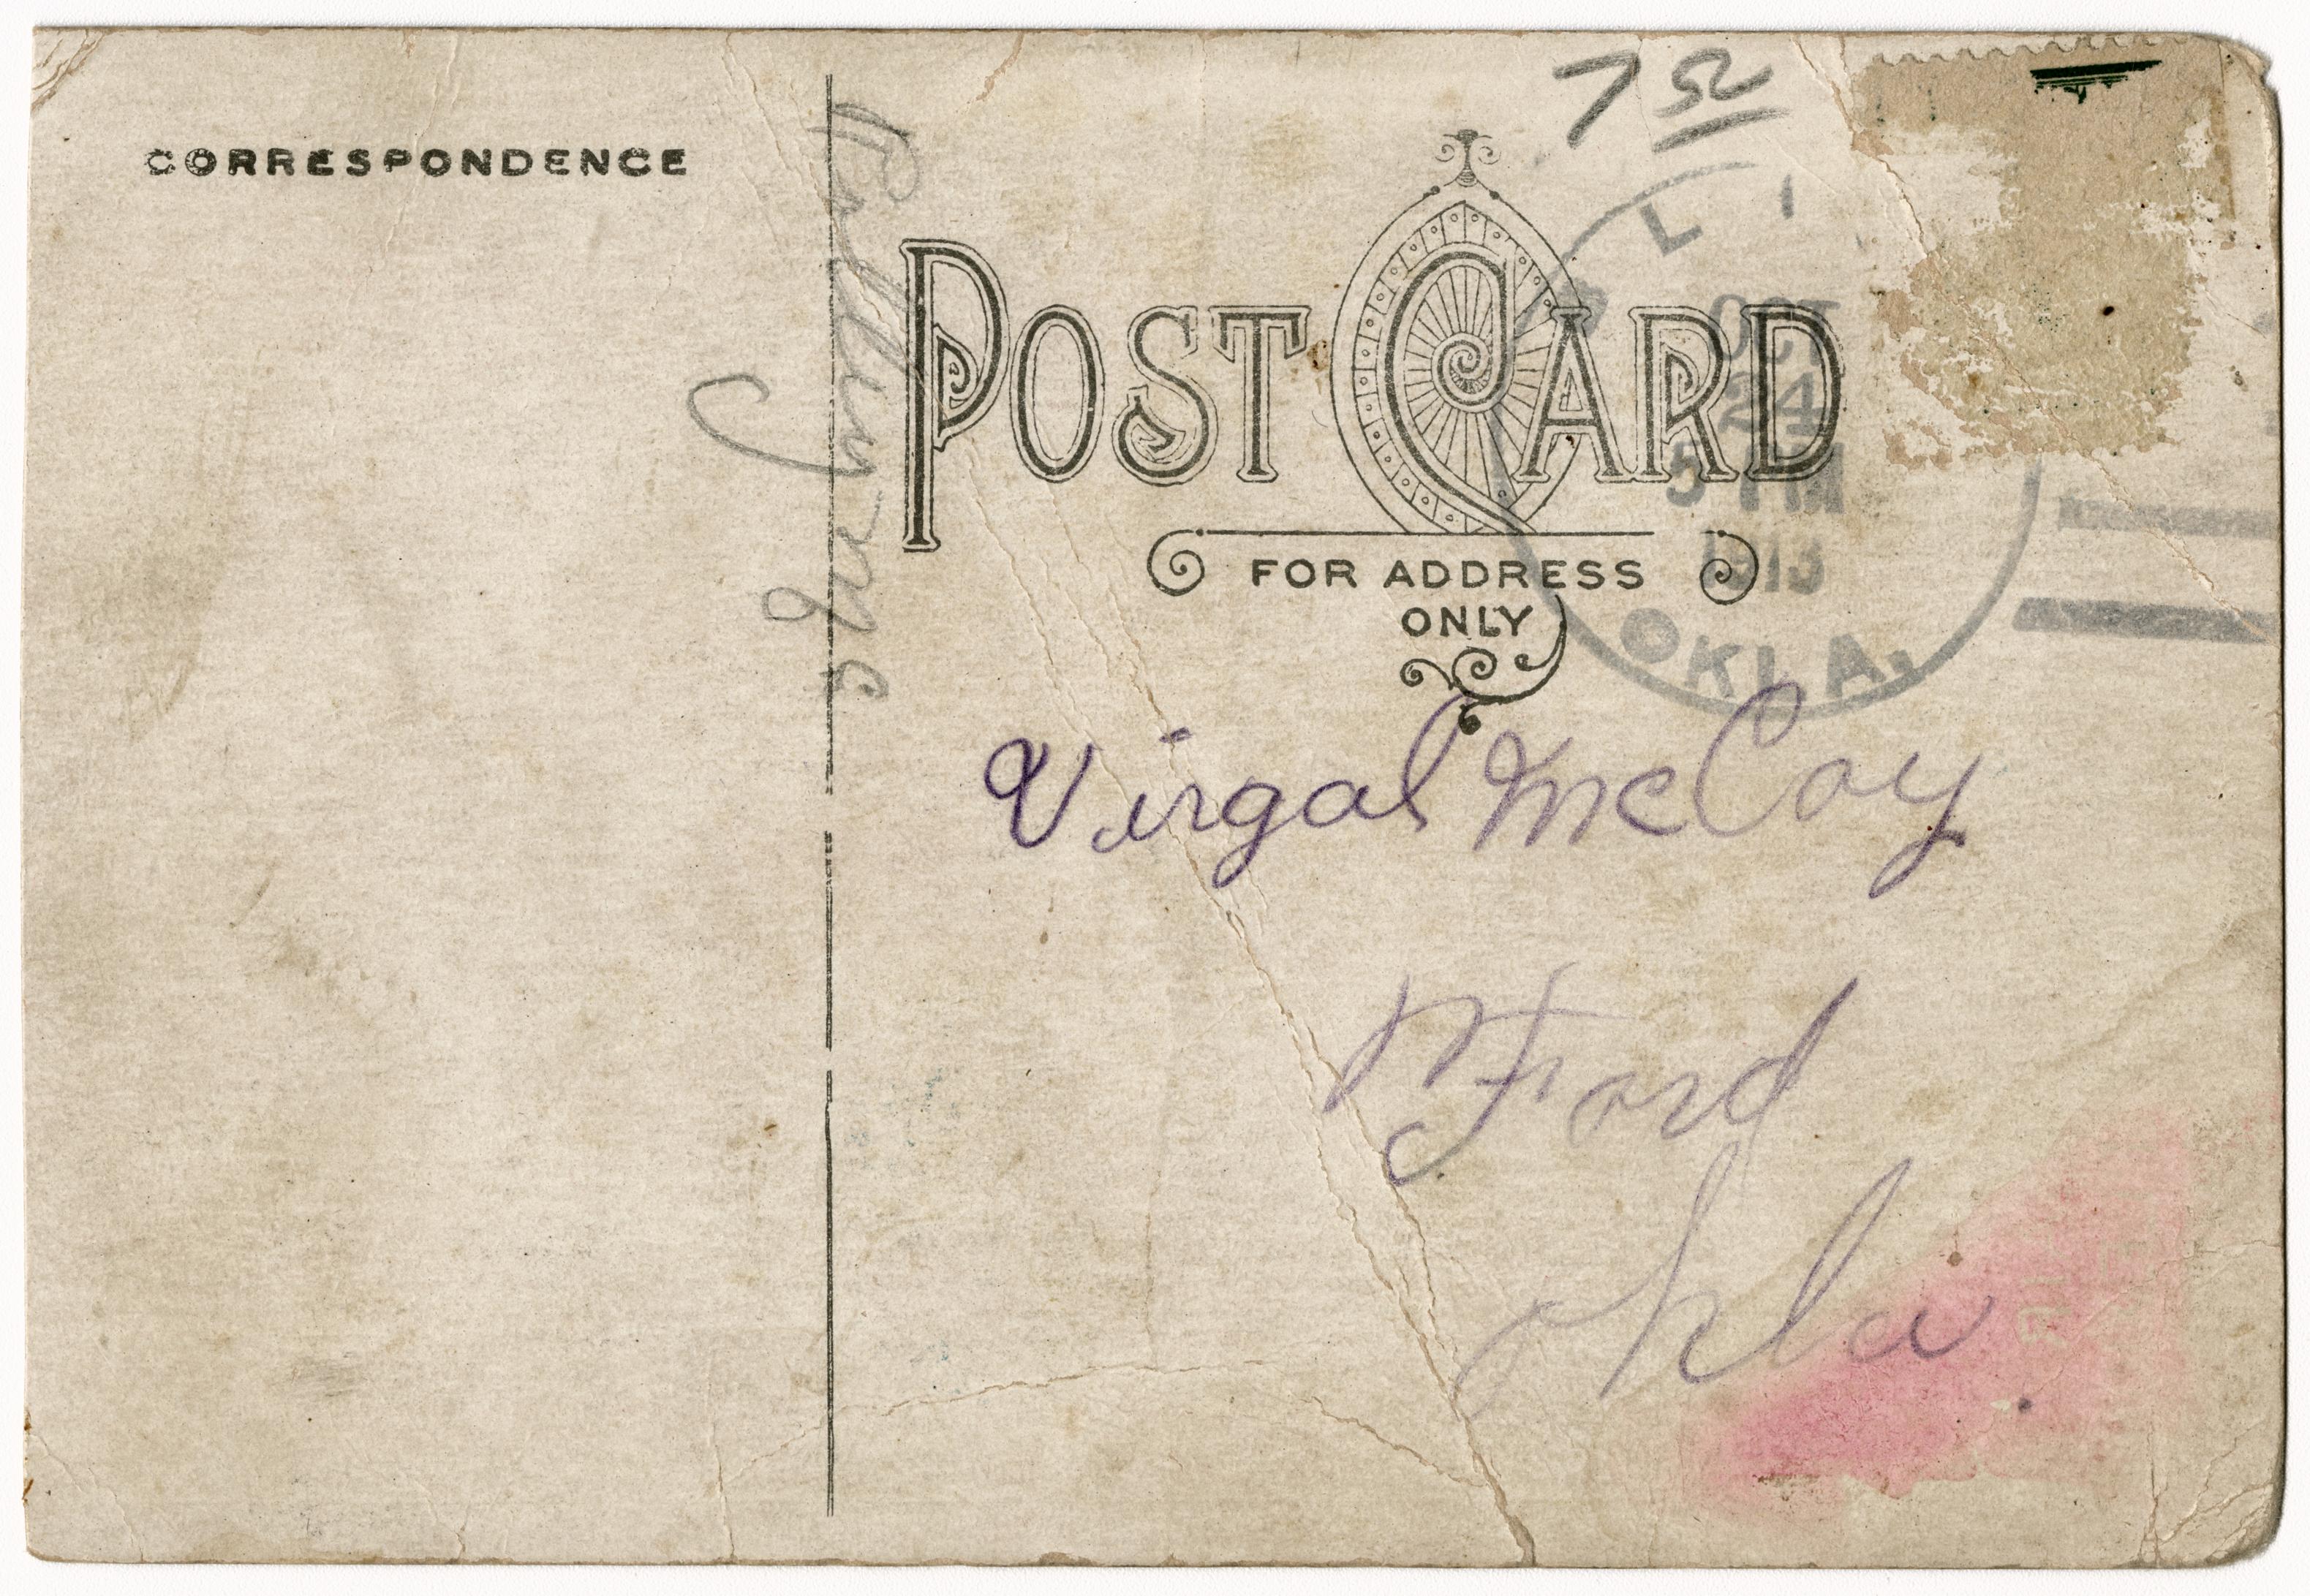 CORRESPONDENCE
7 52
POST CARD
FOR ADDRESS
ONLY
L I
OCT
24
5 PM
1913
OKLA.
Virgal McCoy
Ford
okla